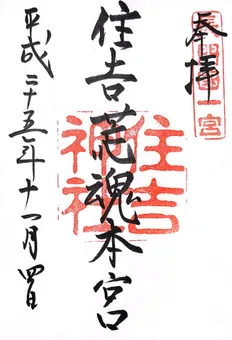 奉拝
長門國一宮
住吉荒魂本宮
住吉神社
平成二十五年十一月四日